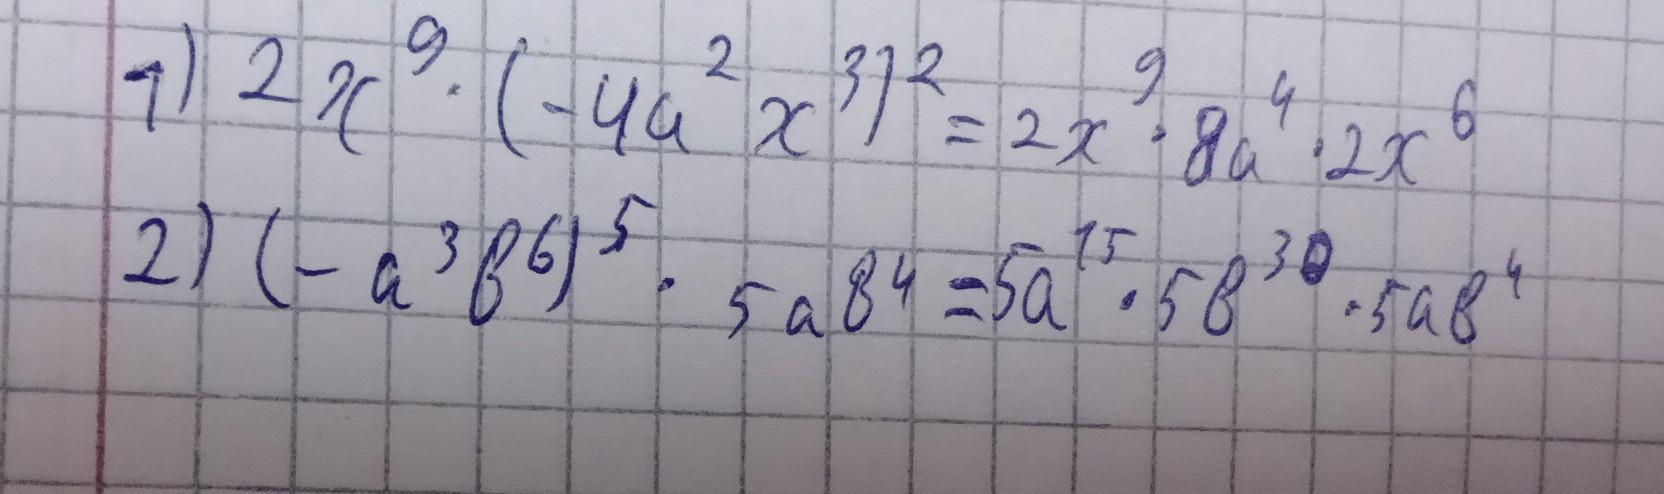 1) 2x⁹ · (-4a²x³)² = 2x⁹ · 8a⁴ · 2x⁶
2) (-a³b⁶)⁵ · 5ab⁴ = 5a¹⁵ · 5b³⁰ · 5ab⁴